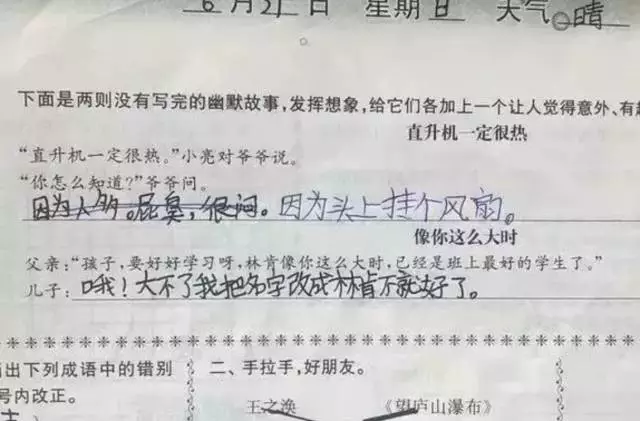 6月21日 星期日 天气:晴
下面是两则没有写完的幽默故事,发挥想象,给它们各加上一个让人觉得意外、有
直升机一定很热
“直升机一定很热。”小亮对爷爷说。
“你怎么知道?”爷爷问。
因为人多。屁臭,很闷。因为头上挂个风扇。
像你这么大时
父亲:“孩子,要好好学习呀,林肯像你这么大时,已经是班上最好的学生了。”
儿子:哦!大不了我把名字改成林肯不就好了。
出下列成语中的错别
二、手拉手,好朋友。
号内改正。
王之涣 《望庐山瀑布》